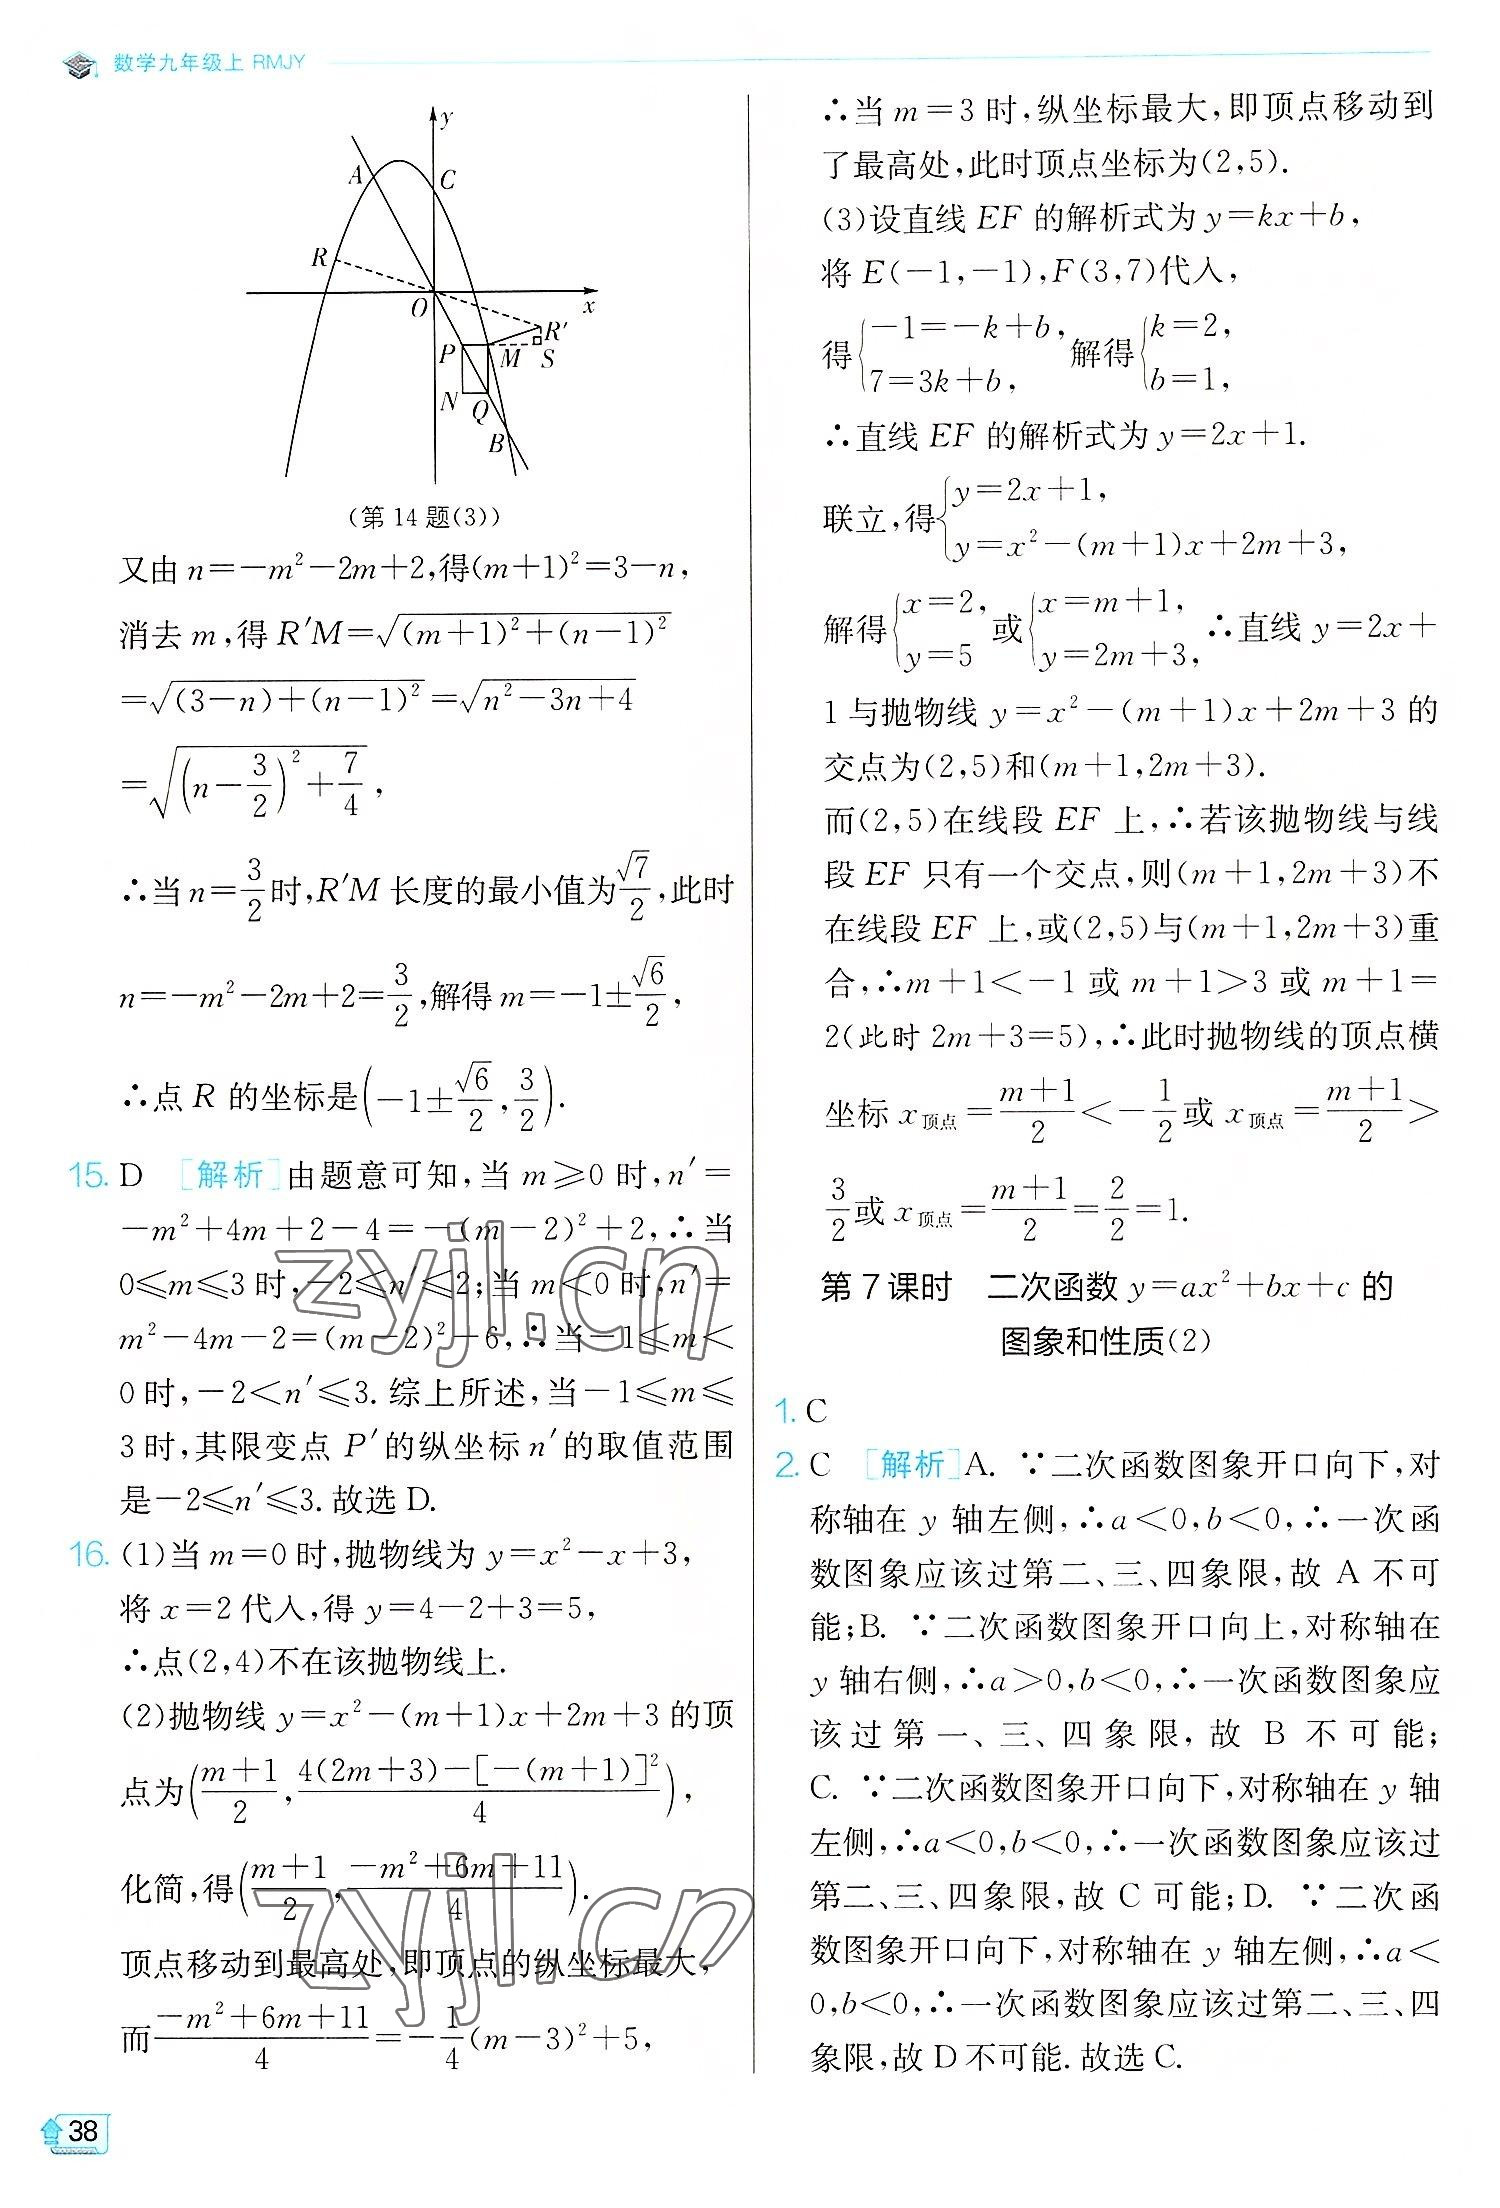 数学九年级上 RMJY
y
A
C
R
O
x
R′
P
M
S
N
Q
B
(第14题(3))
又由 n=-m²-2m+2,得(m+1)²=3-n,
消去 m,得 R′M=√((m+1)²+(n-1)²)
=√((3-n)+(n-1)²)=√(n²-3n+4)
=√((n-3/2)²+7/4),
∴当 n=3/2时,R′M 长度的最小值为√7/2,此时
n=-m²-2m+2=3/2,解得 m=-1±√6/2,
∴点 R 的坐标是(-1±√6/2,3/2).
15. D [解析]由题意可知,当 m≥0 时,n′=
-m²+4m+2-4=-(m-2)²+2,∴当
0≤m≤3时,-2≤n′≤2;当 m<0时,n′=
m²-4m-2=(m-2)²-6,∴当-1≤m<
0时,-2<n′≤3.综上所述,当-1≤m≤
3时,其限变点 P′的纵坐标n′的取值范围
是-2≤n′≤3.故选D.
16. (1)当 m=0时,抛物线为 y=x²-x+3,
将 x=2代入,得 y=4-2+3=5,
∴点(2,4)不在该抛物线上.
(2)抛物线 y=x²-(m+1)x+2m+3的顶
点为((m+1)/2,(4(2m+3)-[-(m+1)]²)/4),
化简,得((m+1)/2,(-m²+6m+11)/4).
顶点移动到最高处,即顶点的纵坐标最大,
而(-m²+6m+11)/4=-1/4(m-3)²+5,
∴当 m=3时,纵坐标最大,即顶点移动到
了最高处,此时顶点坐标为(2,5).
(3)设直线 EF 的解析式为 y=kx+b,
将 E(-1,-1),F(3,7)代入,
得{-1=-k+b, 7=3k+b, 解得{k=2, b=1,
∴直线 EF 的解析式为 y=2x+1.
联立,得{y=2x+1, y=x²-(m+1)x+2m+3,
解得{x=2, y=5 或{x=m+1, y=2m+3, ∴直线 y=2x+
1与抛物线 y=x²-(m+1)x+2m+3的
交点为(2,5)和(m+1,2m+3).
而(2,5)在线段 EF 上,∴若该抛物线与线
段 EF 只有一个交点,则(m+1,2m+3)不
在线段 EF 上,或(2,5)与(m+1,2m+3)重
合,∴m+1<-1或 m+1>3或 m+1=
2(此时 2m+3=5),∴此时抛物线的顶点横
坐标 x顶点=(m+1)/2<-1/2或 x顶点=(m+1)/2>
3/2或 x顶点=(m+1)/2=2/2=1.
第7课时 二次函数 y=ax²+bx+c 的
图象和性质(2)
1. C
2. C [解析]A. ∵二次函数图象开口向下,对
称轴在 y 轴左侧,∴a<0,b<0,∴一次函
数图象应该过第二、三、四象限,故 A 不可
能;B. ∵二次函数图象开口向上,对称轴在
y 轴右侧,∴a>0,b<0,∴一次函数图象应
该过第一、三、四象限,故 B 不可能;
C. ∵二次函数图象开口向下,对称轴在 y 轴
左侧,∴a<0,b<0,∴一次函数图象应该过
第二、三、四象限,故 C 可能;D. ∵二次函
数图象开口向下,对称轴在 y 轴左侧,∴a<
0,b<0,∴一次函数图象应该过第二、三、四
象限,故D不可能.故选C.
zyjl.cn
zyjl.cn
38